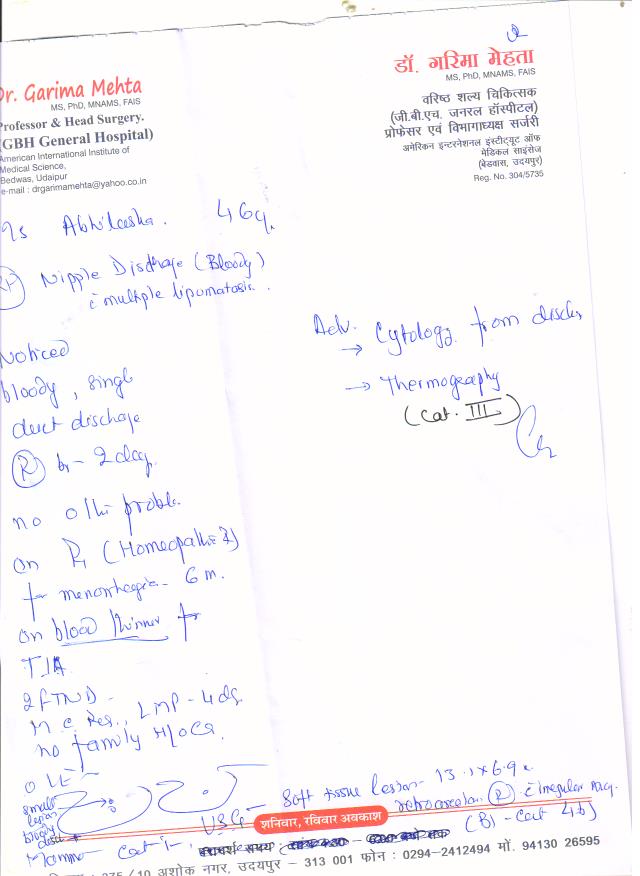 Dr. Garima Mehta
MS, PhD, MNAMS, FAIS
Professor & Head Surgery.
(GBH General Hospital)
American International Institute of
Medical Science,
Bedwas, Udaipur
e-mail : drgarimamehta@yahoo.co.in
डॉ. गरिमा मेहता
MS, PhD, MNAMS, FAIS
वरिष्ठ शल्य चिकित्सक
(जी.बी.एच. जनरल हॉस्पीटल)
प्रोफेसर एवं विभागाध्यक्ष सर्जरी
अमेरिकन इन्टरनेशनल इंस्टीट्यूट ऑफ
मेडिकल साइंसेज
(बेडवास, उदयपुर)
Reg. No. 304/5735
Abhilasha. 46y.
Nipple Discharge (Bloody)
c̄ multiple lipomatosis.
Noticed
bloody, single
duct discharge
(R) 2 day.
no other problem
on Rx (Homeopathic)
for menorrhagia - 6 m.
on blood thinner for
TIA
2FTND -
LMP - 4 ds
no family H/o Ca.
O/E -
small
lesion
bloody
disch
Mammo Cat
Adv. → Cytology from disch
→ Thermography
(Cat. III)
USG - Soft tissue lesion - 13.1x6.9
retroareolar (R) c̄ irregular marg.
(B) - Cat 4b)
शनिवार, रविवार अवकाश
अशोक नगर, उदयपुर - 313 001 फोन : 0294-2412494 मों. 94130 26595